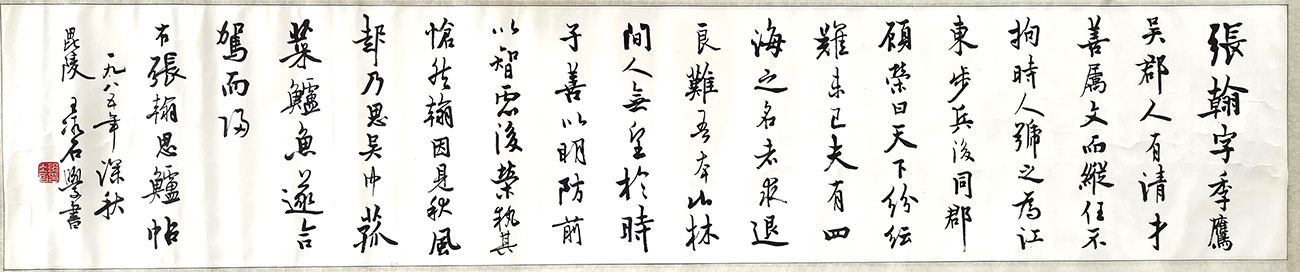 張翰字季鷹
吳郡人有清才
善屬文而縱任不
拘時人號之為江
東步兵後同郡
顧榮曰天下紛紜
難未已夫有四
海之名者求退
良難吾本山林
間人無望於時
子善以明防前
以智慮後榮執其
愴然翰因見秋風
起乃思吳中菰
菜鱸魚遂命
駕而歸
右張翰思鱸帖
一九八五年深秋
毘陵 石學書